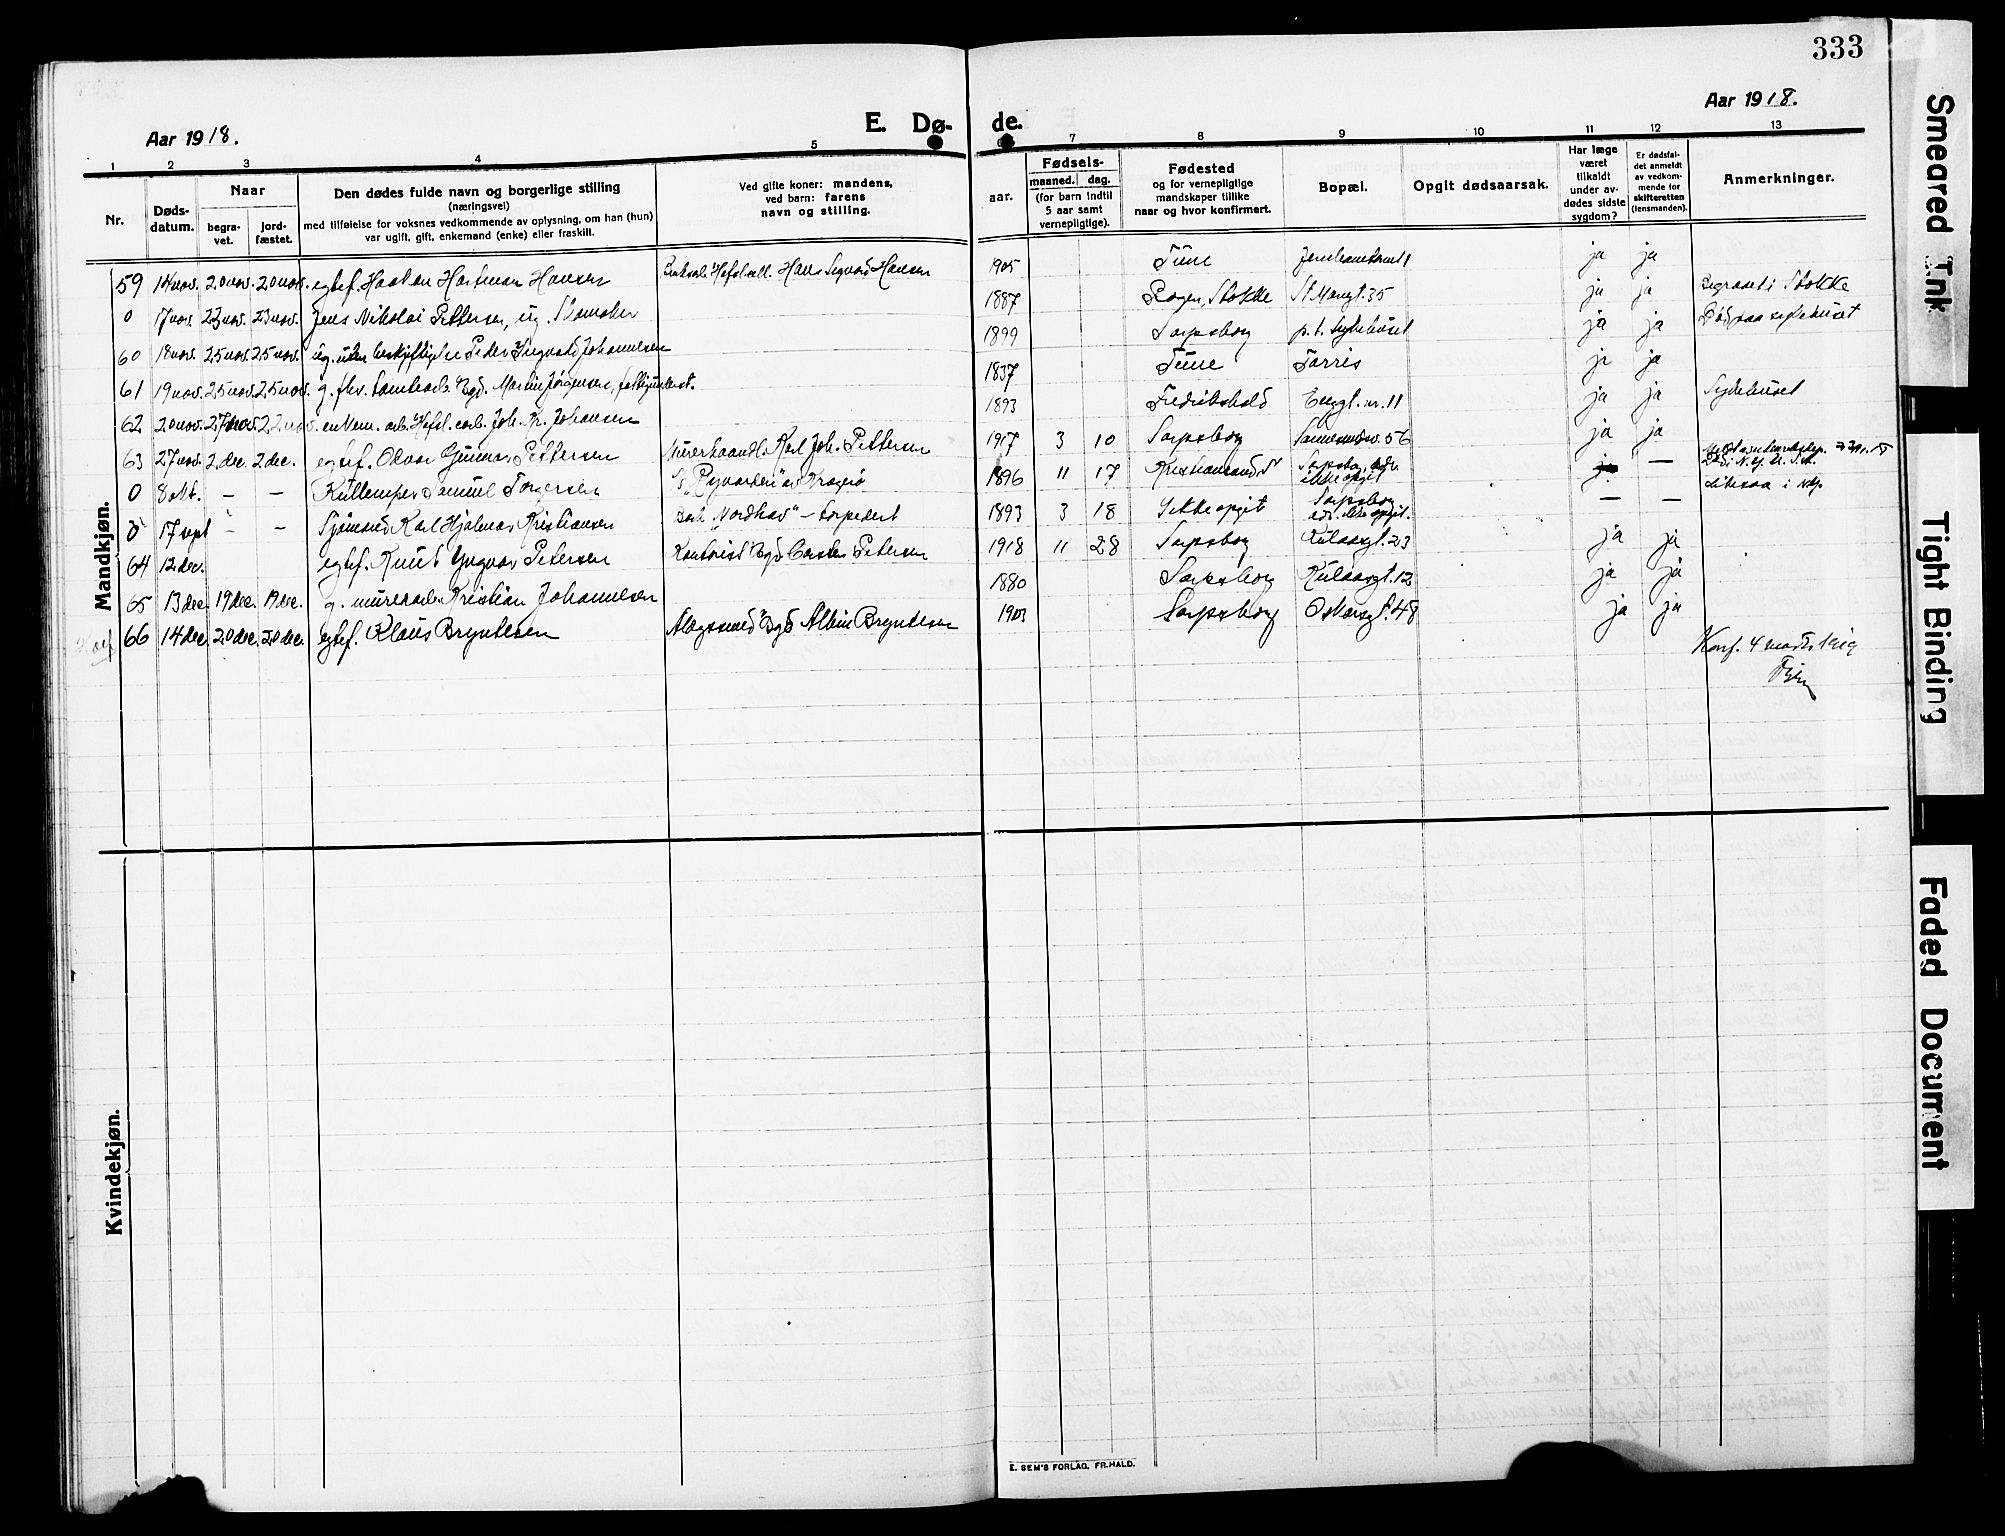 333
Aar 1918.
E. Dø-
de.
Aar 1918.
1 2 3 4 5 6 7 8 9 10 11 12 13
Nr.
Døds-
datum.
Naar
begra-
vet.
jord-
fæstet.
Den dødes fulde navn og borgerlige stilling
(næringsvei)
med tilføielse for voksnes vedkommende av oplysning, om han (hun)
var ugift, gift, enkemand (enke) eller fraskilt.
Ved gifte koner: mandens,
ved barn: farens
navn og stilling.
aar.
Fødsels-
maaned. dag.
(for barn indtil
5 aar samt
vernepligtige).
Fødested
og for vernepligtige
mandskaper tillike
naar og hvor konfirmert.
Bopæl.
Opgit dødsaarsak.
Har læge
været
tilkaldt
under av-
dødes sidste
sygdom?
Er dødsfal-
det anmeldt
av vedkom-
mende for
skifteretten
(lensmanden).
Anmerkninger.
Mandkjøn.
59 14 nov. 20 nov. 20 nov. egtef. Haakon Hartman Hansen Hans Sigvard Hansen 1905 Tune ja ja
0 17 nov. 23 nov. 23 nov. Jens Nikolai Pettersen, ug. 1887 Stokke St Mariegt. 35 ja ja Begravet i Stokke
60 18 nov. 25 nov. 25 nov. ug. uten beskjeftigelse Peder Sigvald Johannesen 1899 Sarpsborg p.t. Sykehuset ja ja Død paa sykehuset
61 19 nov. 25 nov. 25 nov. g. fhv. Martin Jørgensen, 1837 Tune Torris ja ja
62 20 nov. 27 nov. 22 nov. enkem. Joh. Kr. Johansen 1893 Fredrikshald Enggt. nr. 11 ja ja Sykehuset
63 27 nov. 2 dec. 2 dec. egtef. Odvar Gunnar Pettersen Murerhaandl. Karl Joh. Pettersen 1917 3 10 Sarpsborg 56 ja ja
0 8 okt. – – Kullemper Samuel Torgersen S/S "Ryvarden" av Kragerø 1896 11 17 Kristiansand S. Sarpsborg, adr.
ikke opgit ja –
0 17 sept – – Sjømand Karl Hjalmar Kristiansen Bark "Nordhav" – torpedert 1893 3 18 Ikke opgit Sarpsborg
adr. ikke opgit. – –
64 12 dec. egtef. Knut Yngvar Petersen Kontorist Carsten Petersen 1918 11 28 Sarpsborg Kulaasgt. 23 ja ja
65 13 dec. 19 dec. 19 dec. g. murerarb. Kristian Johannesen 1880 Sarpsborg Kulaasgt. 12 ja ja
66 14 dec. 20 dec. 20 dec. egtef. Klaus Bryntesen Albin Bryntesen 1903 Sarpsborg Oskarsgt. 48 ja ja
Konf. 4 marts 1919
Kvindekjøn.
E. SEM'S FORLAG, FR.HALD.
Smeared Ink
Tight Binding
Faded Document